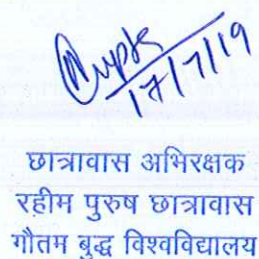 Gupta
17/7/19
छात्रावास अभिरक्षक
रहीम पुरुष छात्रावास
गौतम बुद्ध विश्वविद्यालय